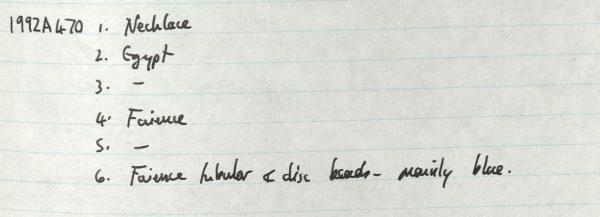 1992A470 1. Necklace
2. Egypt
3. -
4. Faience
5. -
6. Faience tubular & disc beads - mainly blue.